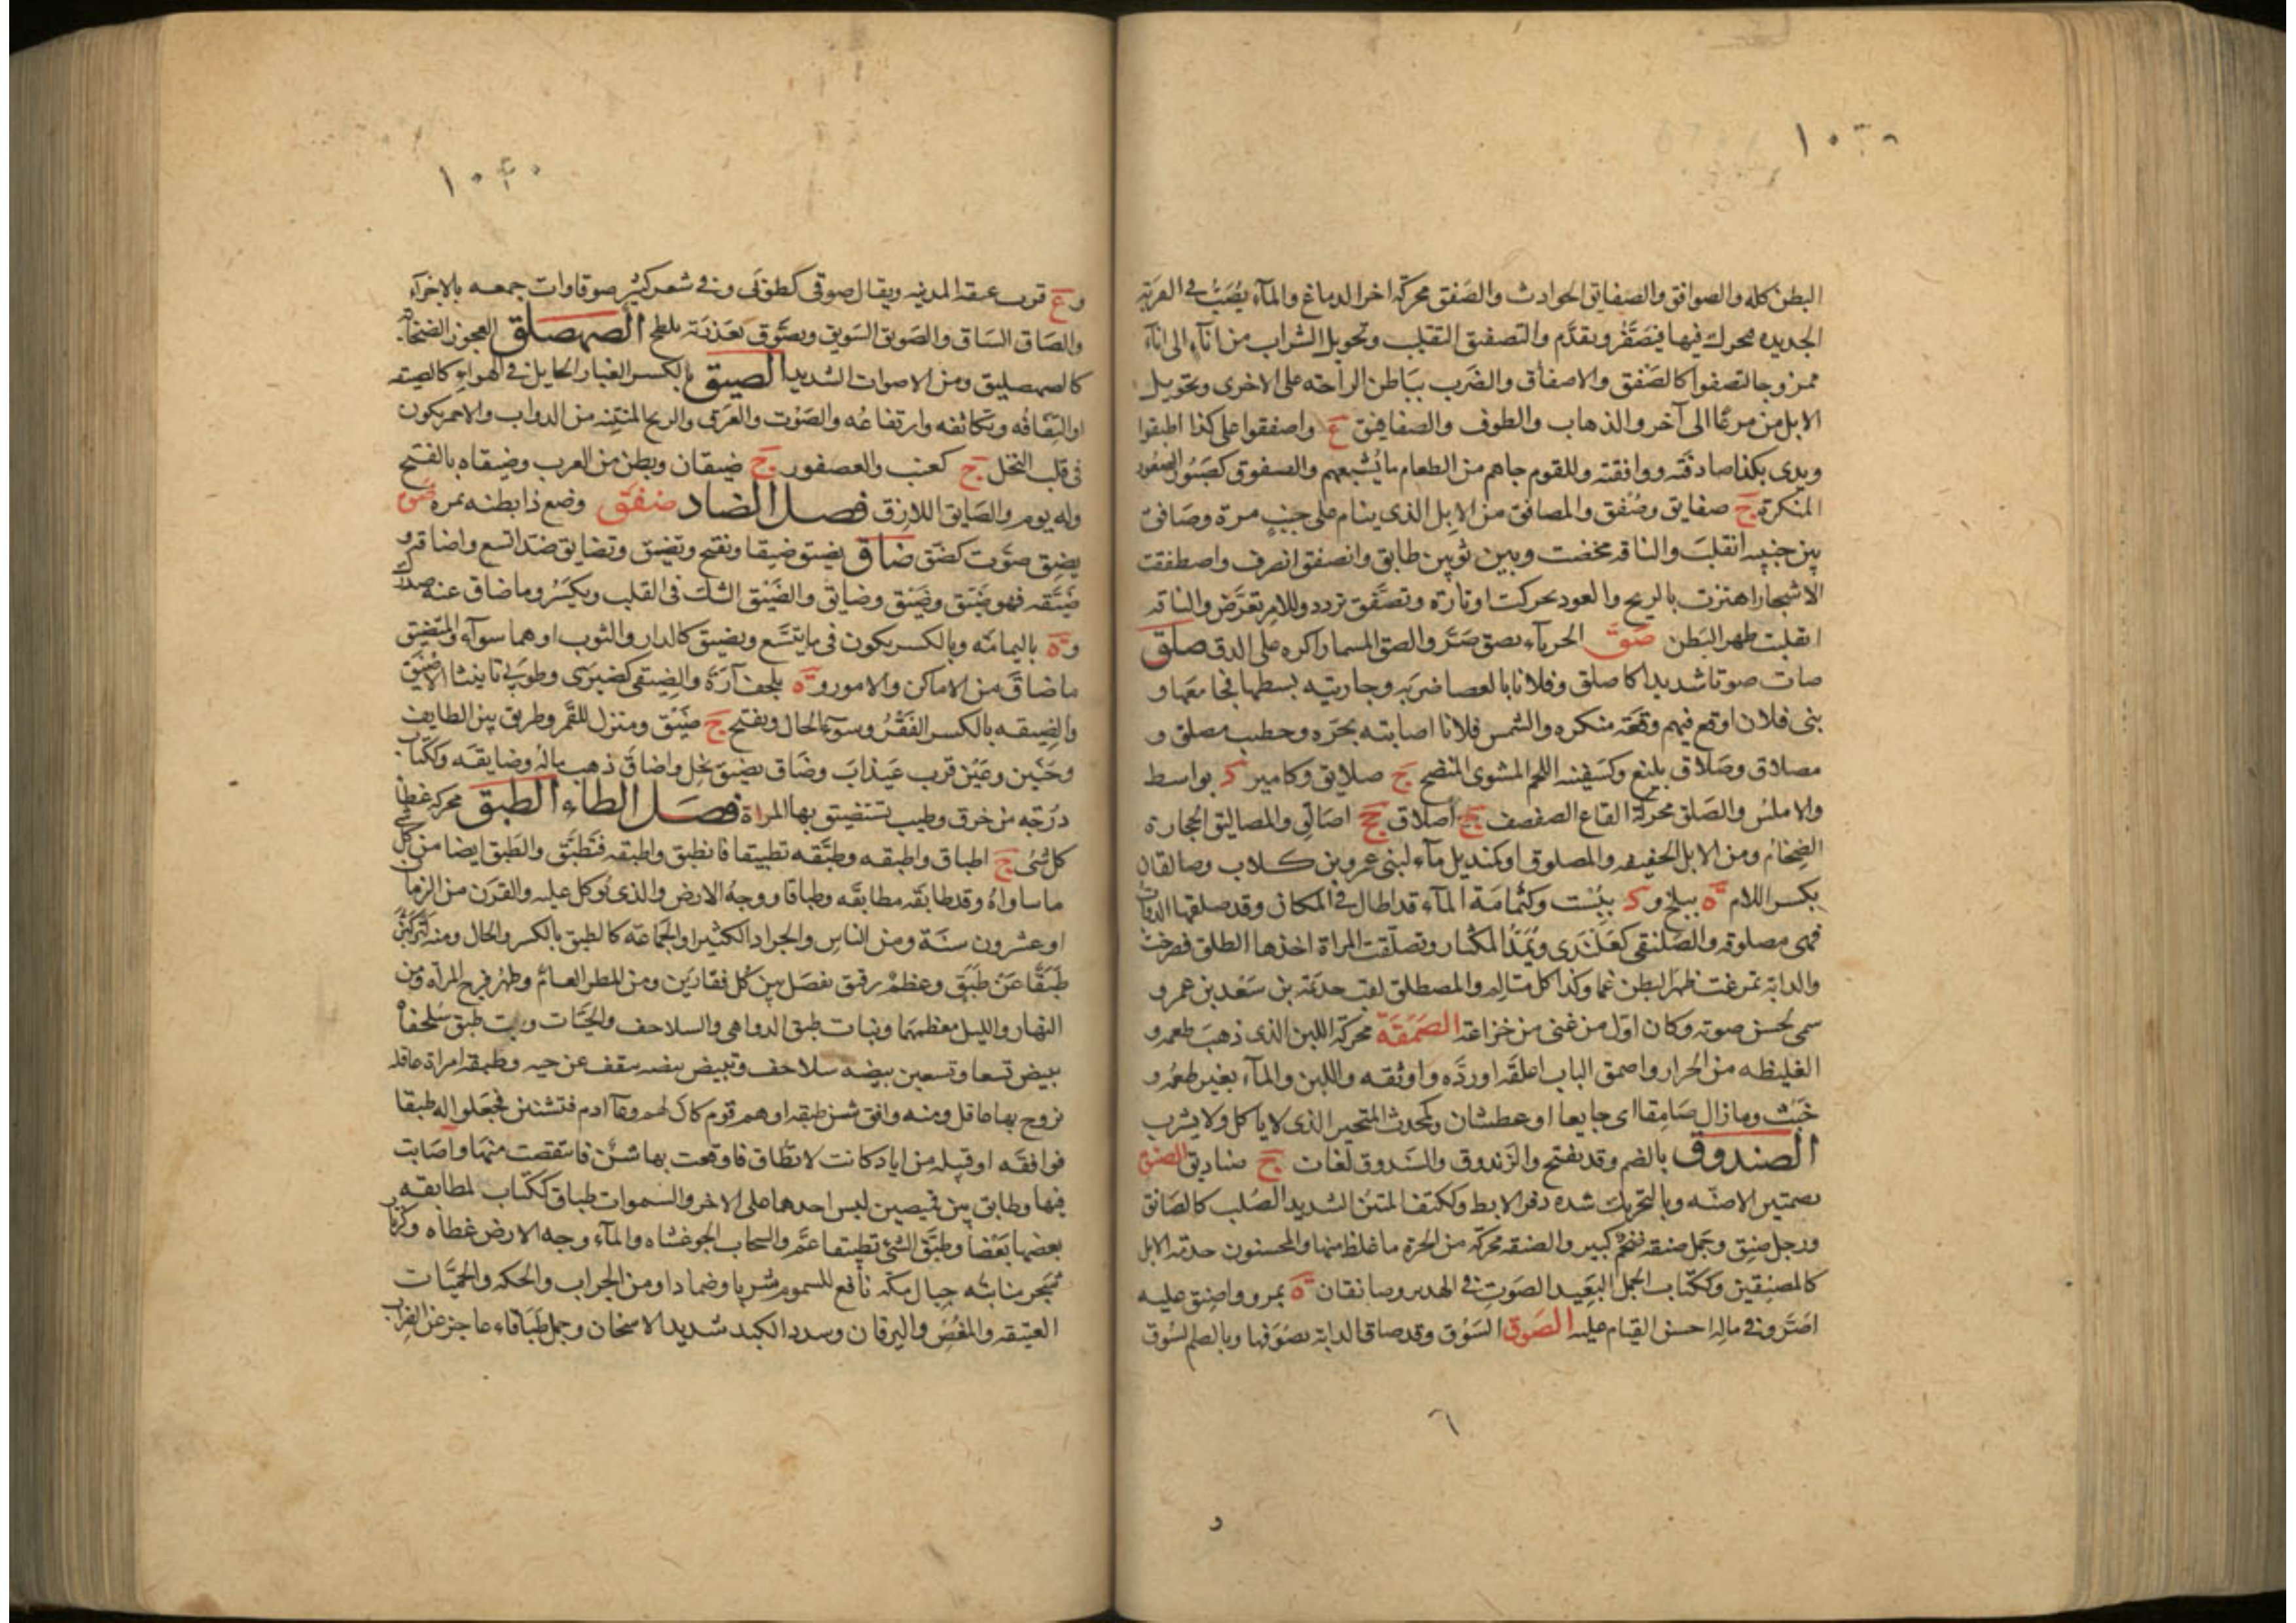 ١٠٣٠
البطن كله والصوافق والصفايق الحوادث والصَفق محركة اخر الدماغ والمآء يُصَبُّ في القربة
الجديده فيحرك فيها فيَصفَرّ وتقدَّم والتصفيق التقليب وتحويل الشراب من انآءٍ الى انآء
ممزوجا لتصفوا كالصَفق والاصفاق والضَرب بباطن الراحة على الاخرى وتحويل
الابل من مرعًا الى آخر والذهاب والطوف والصفافيق ع واصفقوا على كذا اطبقوا
ويدى بكذا صادفَته ووافقته وللقوم جاهم من الطعام ما يُشبعهم والصفوق كصَبُور الصعُود
المنكرة ج صفايق وصُفُق والمصافق من الابل الذى ينام على جنبٍ مرة وصَافق
بين جنبيه انقلبَ والناقه مخضت وبين ثوبين طابق وانصفق انصرف واصطفقت
الاشجار اهتزت بالريح والعود تحركت اوتاره وتصَفَّق تردد وللامر تعَرَّض والناقه
انقلبت ظهر البَطن صَقَّ الحربآء يصق صَرَّ والصق المسمار اكره على الدق صَلَق
صات صوتا شديدا كاصلق وفلانا بالعصا ضربَه وجاريته بسطها فجامعَها و
بنى فلان اوقع فيهم وقعَة منكره والشمس فلانا اصابته بحَرّه وخطيب مصلق و
مصلاق وصَلاق بليغ وكسَفينه اللحم المشوى المنضج ج صلايق وكامير د بواسط
والاملسُ والصَلق محركة القاع الصفصف ج اصلاق جج اصَالِق والمصاليق الحجارة
الضِخام ومن الابل الخفيفه والمصلوق اوكمنديل مآء لبنى عمرو بن كلاب وصالقان
بكسر اللام ه ببلخ و د ببُست وكثُمامَة المآء قد اطال في المكان وقد صلقها الدوابّ
فهى مصلوقه والصَلنقى كعَلَندَى ويُمَدُّ المكثار وتصلّقت المراة اخذها الطلق فصرخت
والدابة تمرغت ظهرَ البطن غما وكذا كل متالمِ والمصطلق لقب جديمَة بن سَعْد بن عمرو
سمى لحسن صوته وكان اول من غنى من خزاعة الصَمَقَة محركة اللبن الذى ذهبَ طعمه و
الغليظه من الحرار واصمق الباب اغلقه اوردَّه واوثقه واللبن والمآء تغير طعمُه و
خَبُث وما زال صَامِقا اى جايعا او عطشان وكمحدث المتحير الذى لا ياكل ولا يشرب
الصندوق بالضم وقد يفتح والزَندوق والسَندوق لغات ج صناديق الصنق
بضمتين الاصنّه وبالتحريك شدة ذفر الابط وككتف المتين الشديد الصُلب كالصَانق
ورجل صَنِق وجمل صنقه ضخم كبير والصنقه محركه من الحرة ما غلظ منها والمحسنون خدمة الابل
كالمصنِقين وككتاب الجمل البَعِيد الصَوتِ في الهدير وصانقان ه بمرو واصنق عليه
اصَرَّ وفي مالِه احسن القيام عليه الصَوق السَوْق وقد صاق الدابة يصُوقها وبالضم السُوق
٦
و
١٠٣٠
و ع قرب عيقة المدينه ويقال صوقى كطوبَى وفي شعر كثير صوقاوات جمعه بالاجزآء
والصَاق السَاق والصَويق السَويق وتصَوَّق بعَذِرَته تلطخ الصهصلق العجوز الصَخّابة
كالصهصليق ومن الاصوات الشديد الصيق بالكسر الغبار الجايل في الهوآء كالصيقه
او التفافُه وتكاثفه وارتفاعُه والصَوْت والعَرَق والريح المنتِنه من الدواب والاحمر يكون
فى قلب النخل ج كعنب والعصفور ج صيقان وبطن من العرب وصيقاه بالفتح
وله يوم والصَايق اللازِق فصل الضاد ضفَق وضع ذا بطنه بمره ضق
يضِق صوَّت كضَق ضاق يضيق ضيقا ونفتح وتضيَّق وتضايق ضد اتسع واضاقه و
ضَيَّقه فهو ضَيّق وضَيْق وضايق والضَيْق الشك فى القلب ويكسَرُ وما ضاق عنه صدرك
و ه باليمامَه وبالكسر يكون فى ما يتَّسع ويضيق كالدار والثوب اوهما سوآء والمَضيق
ما ضاقَ من الاماكن والامور و ه بلحف آرَة والضيقى كضيزَى وطوبَى تانيث الاضيق
والضِيقه بالكسر الفَقْرُ وسوءُ الحال ويفتح ج ضيَق ومنزل للقَمر وطريق بين الطايف
وحُنَين وعَين قرب عَيذابَ وضَاق يضيق بخل واضاقَ ذهب ماله وضايقه وككتاب
دُرجة من خرق وطيب تستضيق بها المراة فصل الطاء الطبق محركه غطآ
كل شئ ج اطباق واطبقه وطبّقه تطبيقا فانطبق واطبقه فتَطبَّق والطَبق ايضا من كل شئ
ما ساواهُ وقد طابقَه مطابقَه وطباقا ووجهُ الارض والذى يُوكل عليه والقرن من الزمان
او عشرون سنَة ومن الناسِ والجراد الكثير او الجماعَه كالطبق بالكسر والحال ومنه لتركبُنّ
طَبَقًا عَنْ طَبَقٍ وعظمٌ رقيق يفصَل بين كل فقارَين ومن المطر العامُّ وظهر فرج المرآه ومن
النهار والليل معظمهمَا وبنات طبق الدواهى والسلاحف والحَيّات وبت طبق سُلحفاة
تبيض تسعا وتسعين بيضه سلاحف وتبيض بيضه تنقف عن حيه وطبقه امراة عاقله
تزوج بها عاقل ومنه وافق شن طبقه اوهم قوم كان لهم وعآ ادم فتشنن فجعَلوا له طبقا
فوافقَه او قبيله من اياد كانت لا تطاق فاوقعت بها شَنّ فانتقصت منهَا واصَابت
فيها وطابق بين قميصين لبس احدهما على الاخر والسموات طباق ككتاب لمطابقه
بعضها بعضًا وطبَّق الشئ تطبيقا عَمَّ والسحاب الجو غشاه والمآء وجه الارض غطاه وكزنّار
شجر منابته جبال مكة نافع للسموم شربا وضمادا ومن الجراب والحكه والحميَّات
العتيقه والمغص واليرقان وسدد الكبد شديد الاسخان وجمل طبَاقَاء عاجز عن الضراب